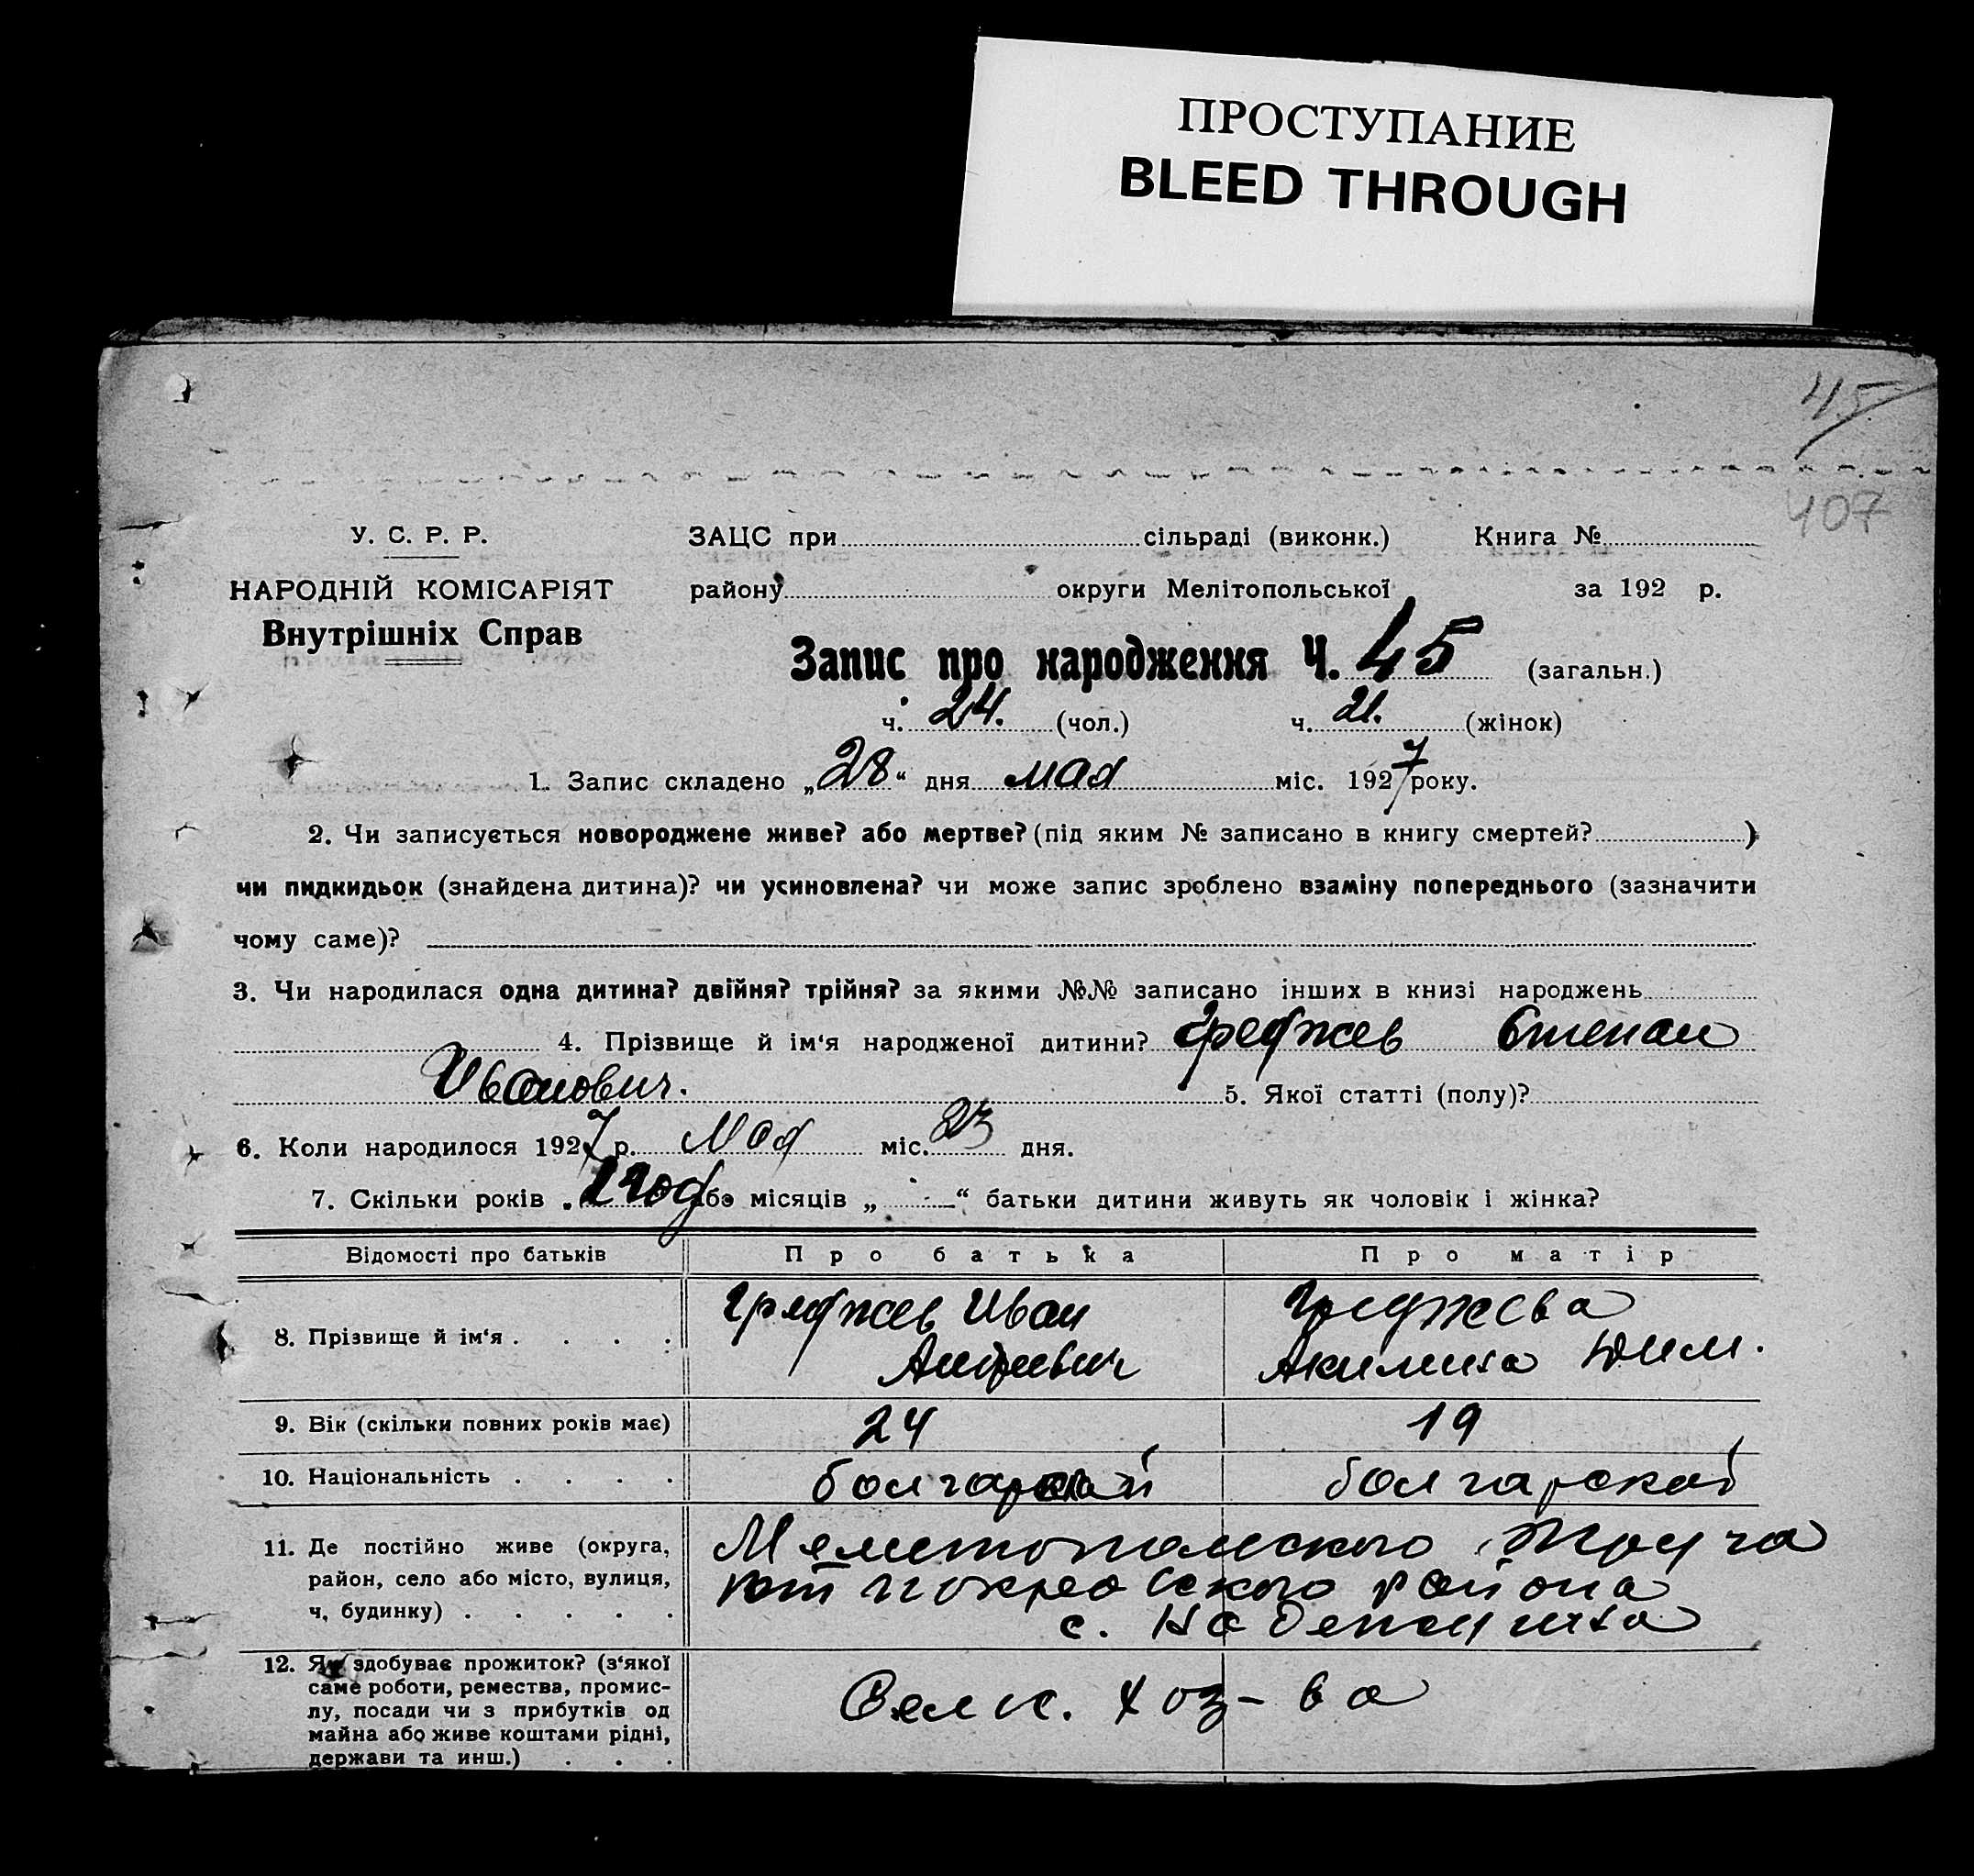 ПРОСТУПАНИЕ
BLEED THROUGH
45
407
У. С. Р. Р.
НАРОДНІЙ КОМІСАРІЯТ
Внутрішніх Справ
ЗАЦС при сільраді (виконк.) Книга №
району округи Мелітопольської за 192 р.
Запис про народження Ч. 45 (загальн.)
ч. 24. (чол.) ч. 21. (жінок)
1. Запис складено „28“ дня мая міс. 1927 року.
2. Чи записується новороджене живе? або мертве? (під яким № записано в книгу смертей? )
чи пидкидьок (знайдена дитина)? чи усиновлена? чи може запис зроблено взаміну попереднього (зазначити
чому саме)?
3. Чи народилася одна дитина? двійня? трійня? за якими №№ записано інших в книзі народжень
4. Прізвище й ім‘я народженої дитини? Греджев Степан
Иванович. 5. Якої статті (полу)?
6. Коли народилося 1927 р. Мая міс. 23 дня.
7. Скільки років „ год або місяців „ — “ батьки дитини живуть як чоловік і жінка?
Відомості про батьків Про батька Про матір
8. Прізвище й ім‘я . . . . Греджев Иван Греджева
Андреевич Акилина Дим.
9. Вік (скільки повних років має) 24 19
10. Національність . . . . болгарской болгарской
11. Де постійно живе (округа, район, село або місто, вулиця, ч. будинку) . . . . .
района
с.
12. Як здобуває прожиток? (з‘якої
саме роботи, ремества, промис-
лу, посади чи з прибутків од
майна або живе коштами рідні,
держави та инш.) . . .
Сельс. хоз-ва